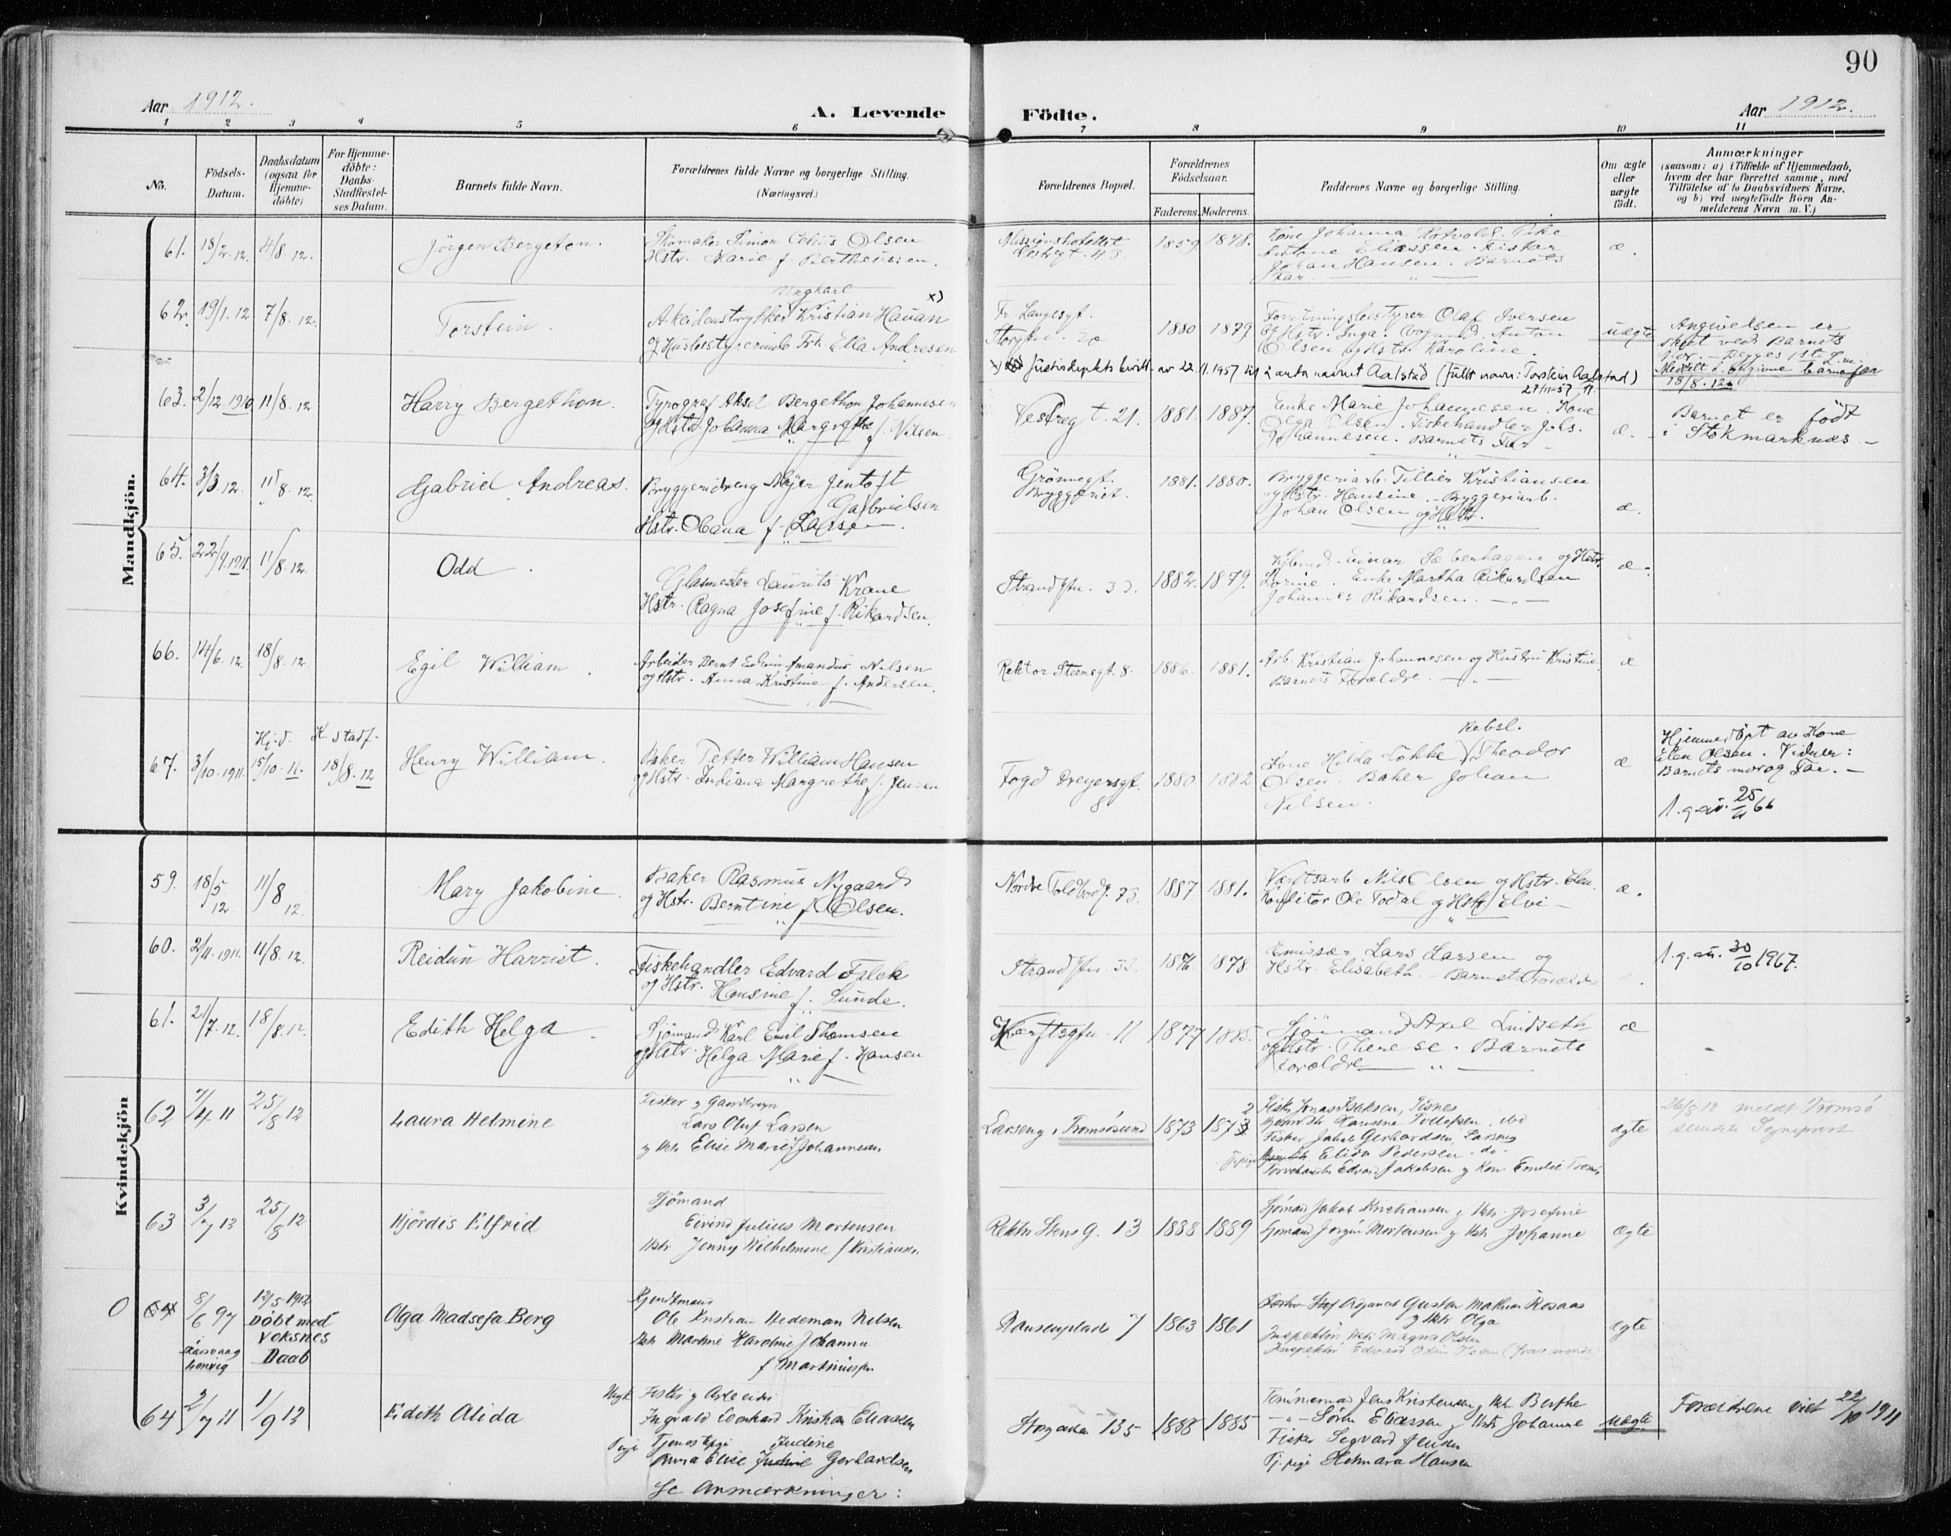 90
Aar 1912.
A. Levende Födte.
Aar 1912.
1 2 3 4 5 6 7 8 9 10 11
No.
Födsels-Datum.
Daabsdatum (ogsaa for Hjemmedöbte)
For Hjemmedöbte: Daabs-Stadfæstelses Datum.
Barnets fulde Navn.
Forældrenes fulde Navne og borgerlige Stilling. (Næringsvei.)
Forældrenes Bopæl.
Forældrenes Födselsaar.
Faderens. Moderens.
Faddernes Navne og borgerlige Stilling.
Om ægte eller uægte födt.
Anmærkninger
(saasom: a) i Tilfælde af Hjemmedaab, hvem der har forrettet samme, med Tilföielse af to Daabsvidners Navne, og b) ved uægtefödte Börn Anmelderens Navn m. V.)
Mandkjön.
61. 18/2.12. 4/8.12. Jörgen Bergeton.
Skomaker Simon Olsen
Hstr. Marie f. Bertheussen.
1859 1878.
Kone Johanna
Eliassen. Fisker
Johan Hansen. Barnets
Far.
æ.
62. 19/1.12 7/8.12. Torstein.
Ungkarl x)
Kristian Hauan
og Husbestyrerinde Frk. Ella Andresen
Fr. Langesgt.
Storgtn. 20
1880 1879
Forretningsbestyrer Olaf Iversen
og Hstr. Inga. Anton
Olsen og Hstr. Karoline.
uægte
Angivelsen er
sket ved Barnets
Meldt d. begivne Barnefar
18/8.12.
x) Justisdepts bevill. av 22/1.1957 til å anta navnet Aalstad (fullt navn: Torstein Aalstad)
63. 2/12.1910 11/8.12. Harry Bergethon.
Typograf Aksel Bergethon Johannesen
og Hstr. Johanna Margrethe f. Nilsen
Vestregt. 21. 1881. 1887.
Enke Marie Johannesen. Kone
Olga Olsen. Fiskehandler Johs.
Johannesen. Barnets Far
æ.
Barnet er födt
i Stokmarknæs.
64. 3/3.12. 11/8.12. Gabriel Andreas.
Bryggeridreng Meyer Jentoft
Gabrielsen
Hstr. f. Larsen.
Grönnegt.
1881. 1880.
Bryggeriarb. Kristiansen
og Hstr. Hansine. Bryggeriarb.
Johan Olsen og Hstr.
æ.
65. 22/9.1911. 11/8.12. Odd.
Glasmester Laurits Krane
Hstr. Ragna Josefine f. Rikardsen.
Strandgtn. 33. 1882. 1879.
Einar og Hstr.
Enke Martha Rikardsen
Johannes Rikardsen.
æ.
66. 14/6.12. 18/8.12. Egil William.
Arbeider Bernt Edvin Amandus Nilsen
og Hstr. Anna Kristine f. Andersen.
Rektor Steensgt. 8. 1886. 1881.
Arb. Kristian Johannesen og Hustru Kristine.
Barnets Forældre.
æ
67. 3/10.1911. Hj.d. 15/10.11. K. stadf. 18/8.12 Henry William.
Baker Petter William Hansen
og Hstr. Indiana Margrethe f. Jensen
Fogd Dreyersgt. 8 1880 1882
Kone Hilda Lökke. Theodor
Olsen. Baker Johan
Nilsen.
æ
Hjemmedöpt av Kone
Elen Olsen. Vidner:
Barnets mor og Far.
1.g.att. 25/11 66
Kvindekjön
59. 18/5.12. 11/8.12. Mary Jakobine
Baker Rasmus Nygaard
og Hstr. Berntine f. Olsen.
Nordre Toldbodg. 1887 1881.
Værftsarb. Nils Olsen og Hstr.
Konditor Ole Todal og Hstr. Elvi
æ.
60. 2/11.1911. 11/8.12. Reidun Harriet.
Fiskehandler Edvard Falck
og Hstr. Hansine f. Sunde.
Strandgtn. 33. 1876. 1878.
Emissær Lars Larsen og
Hstr. Elisabeth. Barnets Forældre
æ.
1.g.att. 30/10 1967.
61. 21/7.12. 18/8.12. Edith Helga.
Sjömand Karl Emil Thomsen
og Hstr. Helga Marie f. Hansen
Værftsgtn. 11 1877 1885.
Sjömand Axel Lindseth
og Hstr. Therese. Barnets
Forældre
æ
62 7/4 11 25/8 12 Laura Helmine
Fisker og Gaardbruger
Lars Oluf Larsen
og Hstr. Elise Marie f. Johannesen
Larseng, Tromsøsund 1873 1873 2
Fisker Jonas Isaksen, Tisnes
Hansine Tollefsen ibid
Fisker Jakob Gerhardsen, Larseng
Elida Pedersen do
Edvard Jakobsen og Kone Emelie Tromsø
ægte
26/8 12 meldt Tromsö
sundets Sogneprest
63 3/7 12 25/8 12 Hjördis Elfrid
Sjömand
Eivind Julius Mortensen
Hstr. Jenny Wilhelmine f. Kristiansen
Rektor Stens g. 13 1888 1889
Sjömand Jakob Kristiansen og Hstr. Josefine
Sjömand Jørgen Mortensen og Hstr. Johanne
ægte
0 64 8/6 97 12/5 1912 Döbt med Voksnes Daab Olga Madsefa Berg
Lenvig
Ole Kristian Hedeman Nilsen
Hstr. Martine Karoline Johanna
f. Martinussen
Hansenplads 7 1863 1861
Gustav
og Hstr. Olga
Inspektör Hstr. Magna Olsen
Inspektör Edvard Odin Olsen (fraværende)
ægte
64 2/7 11 1/9 12 Edith Alida
Ungk. Fisker og Arbeider
Ingvald Leonhard Kristian Eliassen
Pige Tjenestepige Indine
Anna Elise Gerhardsen
Se Anmærkninger:
Storgaten 135 1888 1885
Tömmermand Jens Kristensen og Hstr. Berthe
Sören Eliassen og Hstr. Johanne
Fisker Segvard Jensen
Tj. pige Helmara Hansen
uægte
Forældrene viet 22/10 1911